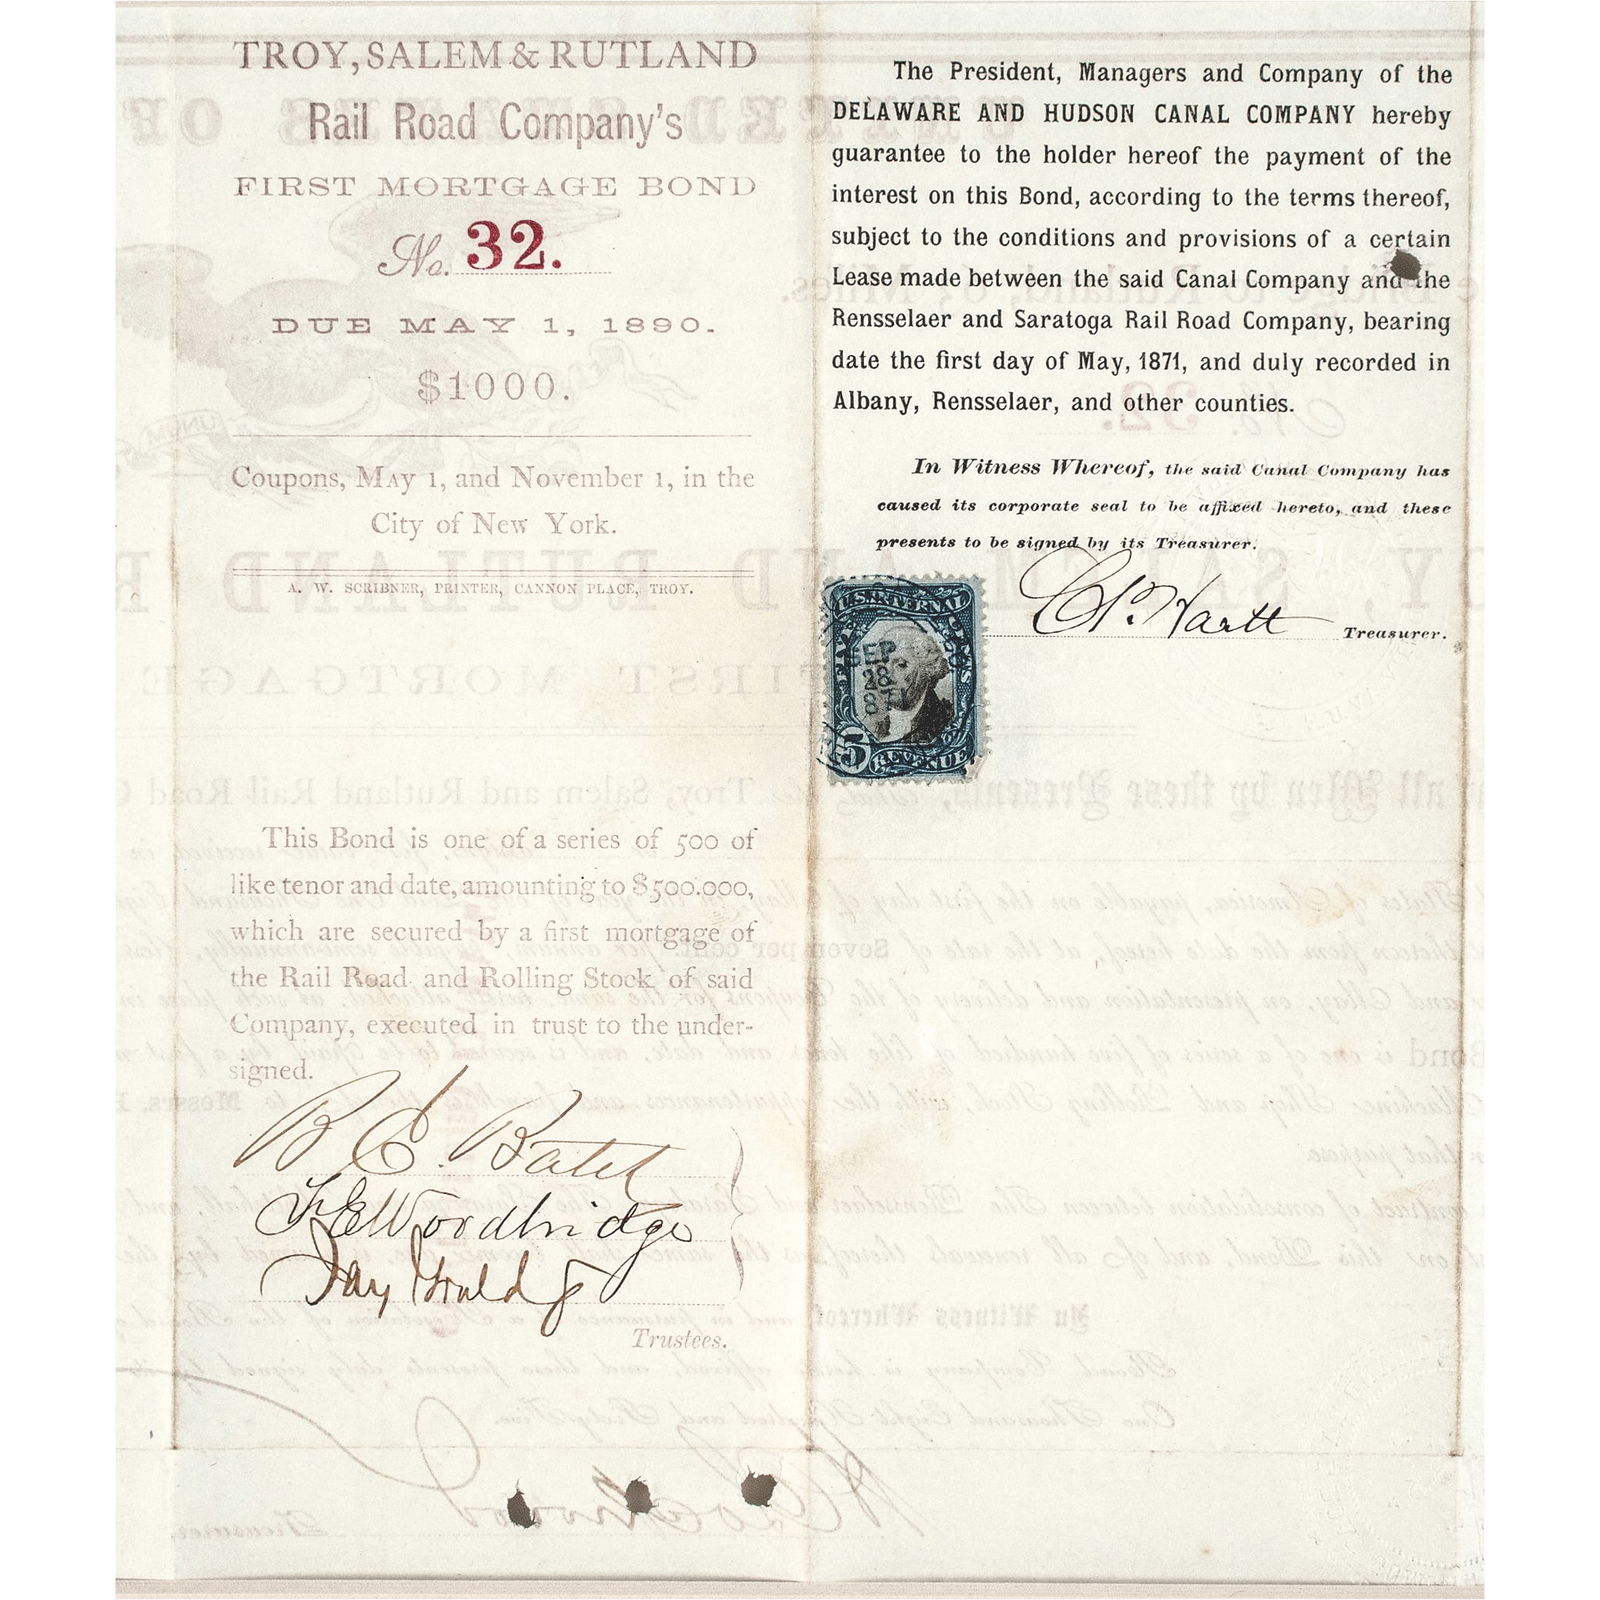 TROY, SALEM & RUTLAND
Rail Road Company's
FIRST MORTGAGE BOND
No. 32.
DUE MAY 1, 1890.
$1000.
Coupons, May 1, and November 1, in the
City of New York.
A. W. SCRIBNER, PRINTER, CANNON PLACE, TROY.
This Bond is one of a series of 500 of
like tenor and date, amounting to $500.000,
which are secured by a first mortgage of
the Rail Road and Rolling Stock of said
Company, executed in trust to the under-
signed.
B E. Bates
Woodbridge
Jay Gould
Trustees.
The President, Managers and Company of the
DELAWARE AND HUDSON CANAL COMPANY hereby
guarantee to the holder hereof the payment of the
interest on this Bond, according to the terms thereof,
subject to the conditions and provisions of a certain
Lease made between the said Canal Company and the
Rensselaer and Saratoga Rail Road Company, bearing
date the first day of May, 1871, and duly recorded in
Albany, Rensselaer, and other counties.
In Witness Whereof, the said Canal Company has
caused its corporate seal to be affixed hereto, and these
presents to be signed by its Treasurer.
Treasurer.
U.S. INTERNAL
SEP.
28
5
REVENUE